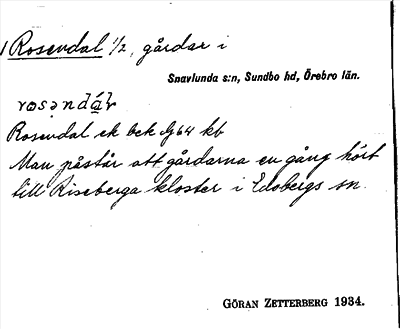 1 Rosendal 1/2, gårdar i
Snavlunda s:n, Sundbo hd, Örebro län.
Rosendal ek bek Jg 64 kb
Man påstår att gårdarna en gång hört
till Riseberga kloster i Edsbergs sn.
GÖRAN ZETTERBERG 1934.